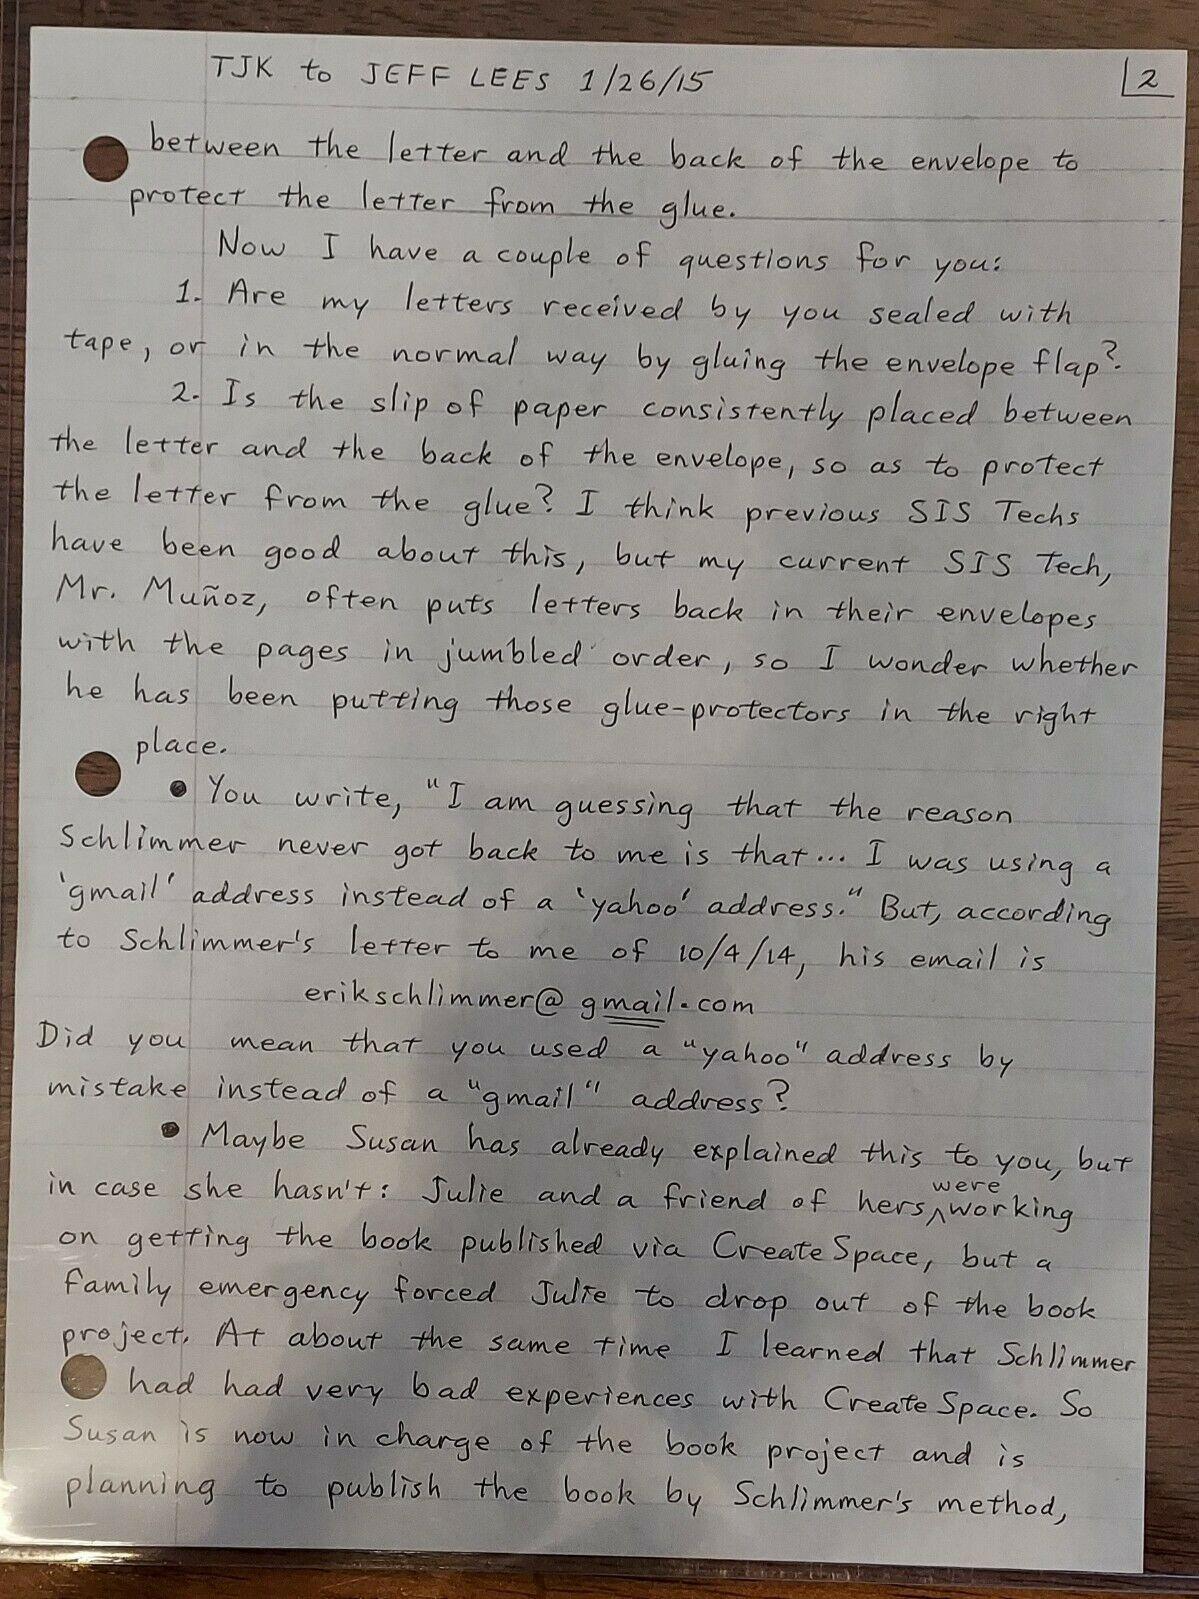 TJK to JEFF LEES 1/26/15
2
between the letter and the back of the envelope to
protect the letter from the glue.
Now I have a couple of questions for you:
1. Are my letters received by you sealed with
tape, or in the normal way by gluing the envelope flap?
2. Is the slip of paper consistently placed between
the letter and the back of the envelope, so as to protect
the letter from the glue? I think previous SIS Techs
have been good about this, but my current SIS Tech,
Mr. Muñoz, often puts letters back in their envelopes
with the pages in jumbled order, so I wonder whether
he has been putting those glue-protectors in the right
place.
• You write, "I am guessing that the reason
Schlimmer never got back to me is that... I was using a
'gmail' address instead of a 'yahoo' address." But, according
to Schlimmer's letter to me of 10/4/14, his email is
erikschlimmer@gmail.com
Did you mean that you used a "yahoo" address by
mistake instead of a "gmail" address?
• Maybe Susan has already explained this to you, but
in case she hasn't: Julie and a friend of hers ^were working
on getting the book published via CreateSpace, but a
family emergency forced Julie to drop out of the book
project. At about the same time I learned that Schlimmer
had had very bad experiences with CreateSpace. So
Susan is now in charge of the book project and is
planning to publish the book by Schlimmer's method,